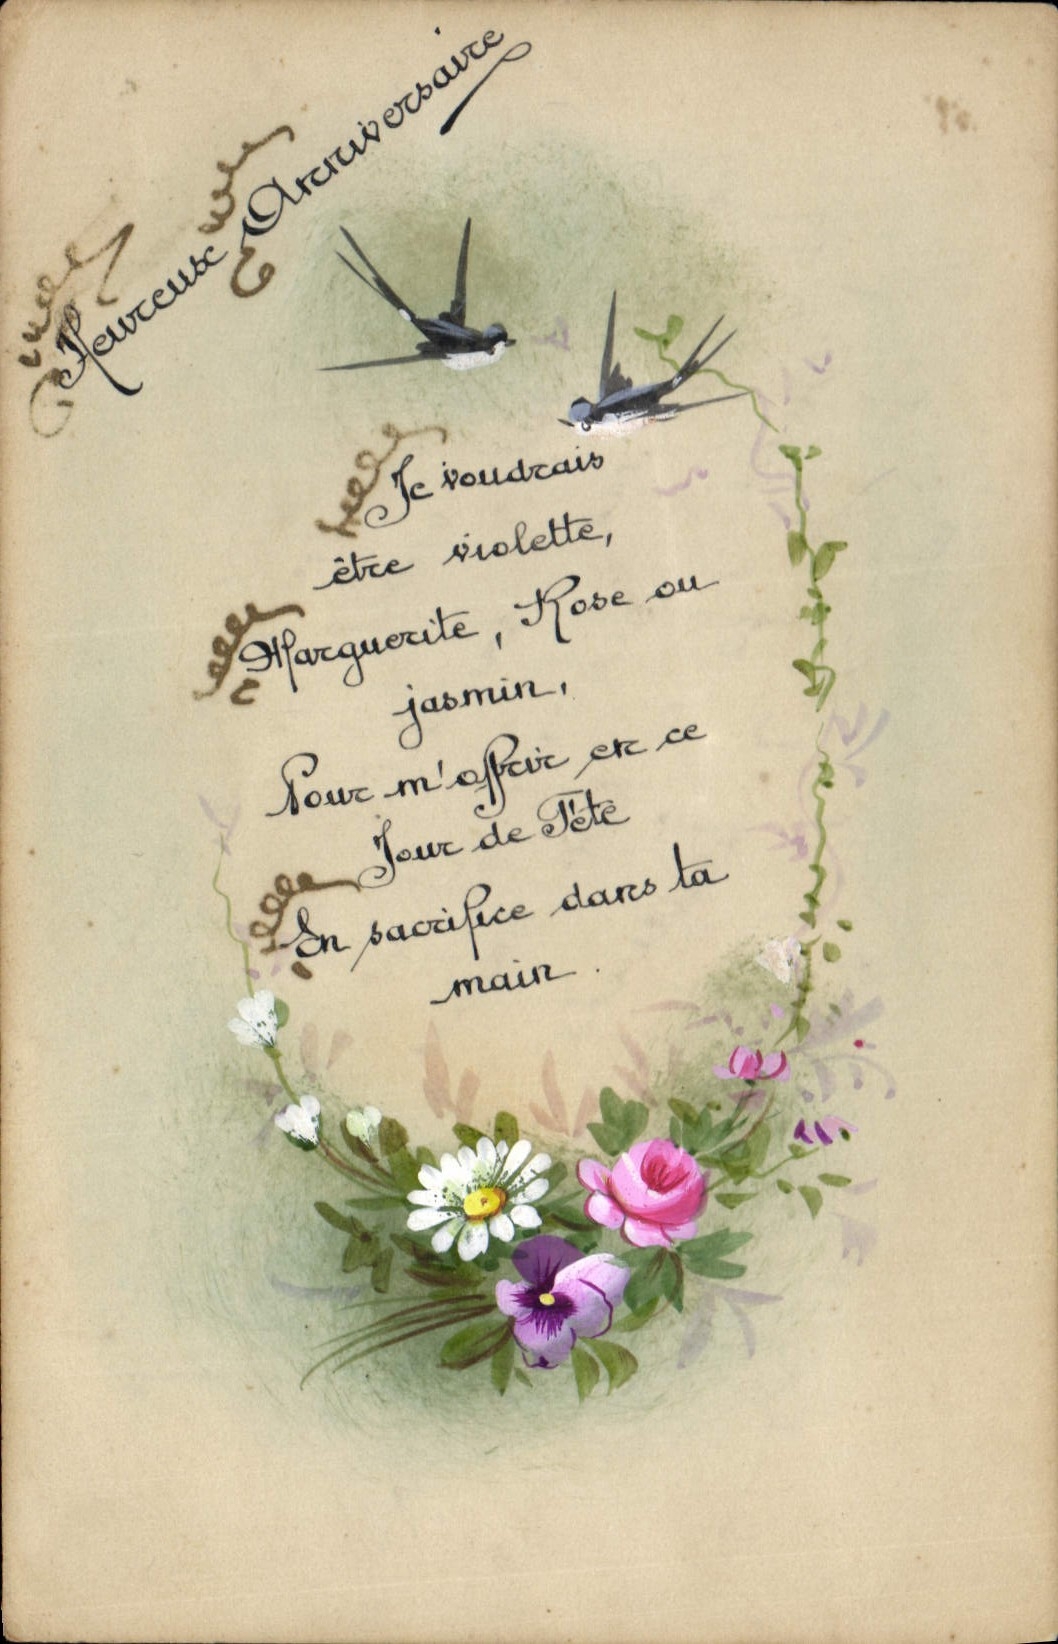 Heureux Anniversaire
Je voudrais
être violette,
Marguerite, Rose ou
jasmin,
Pour m'offrir en ce
Jour de Fête
En sacrifice dans ta
main.